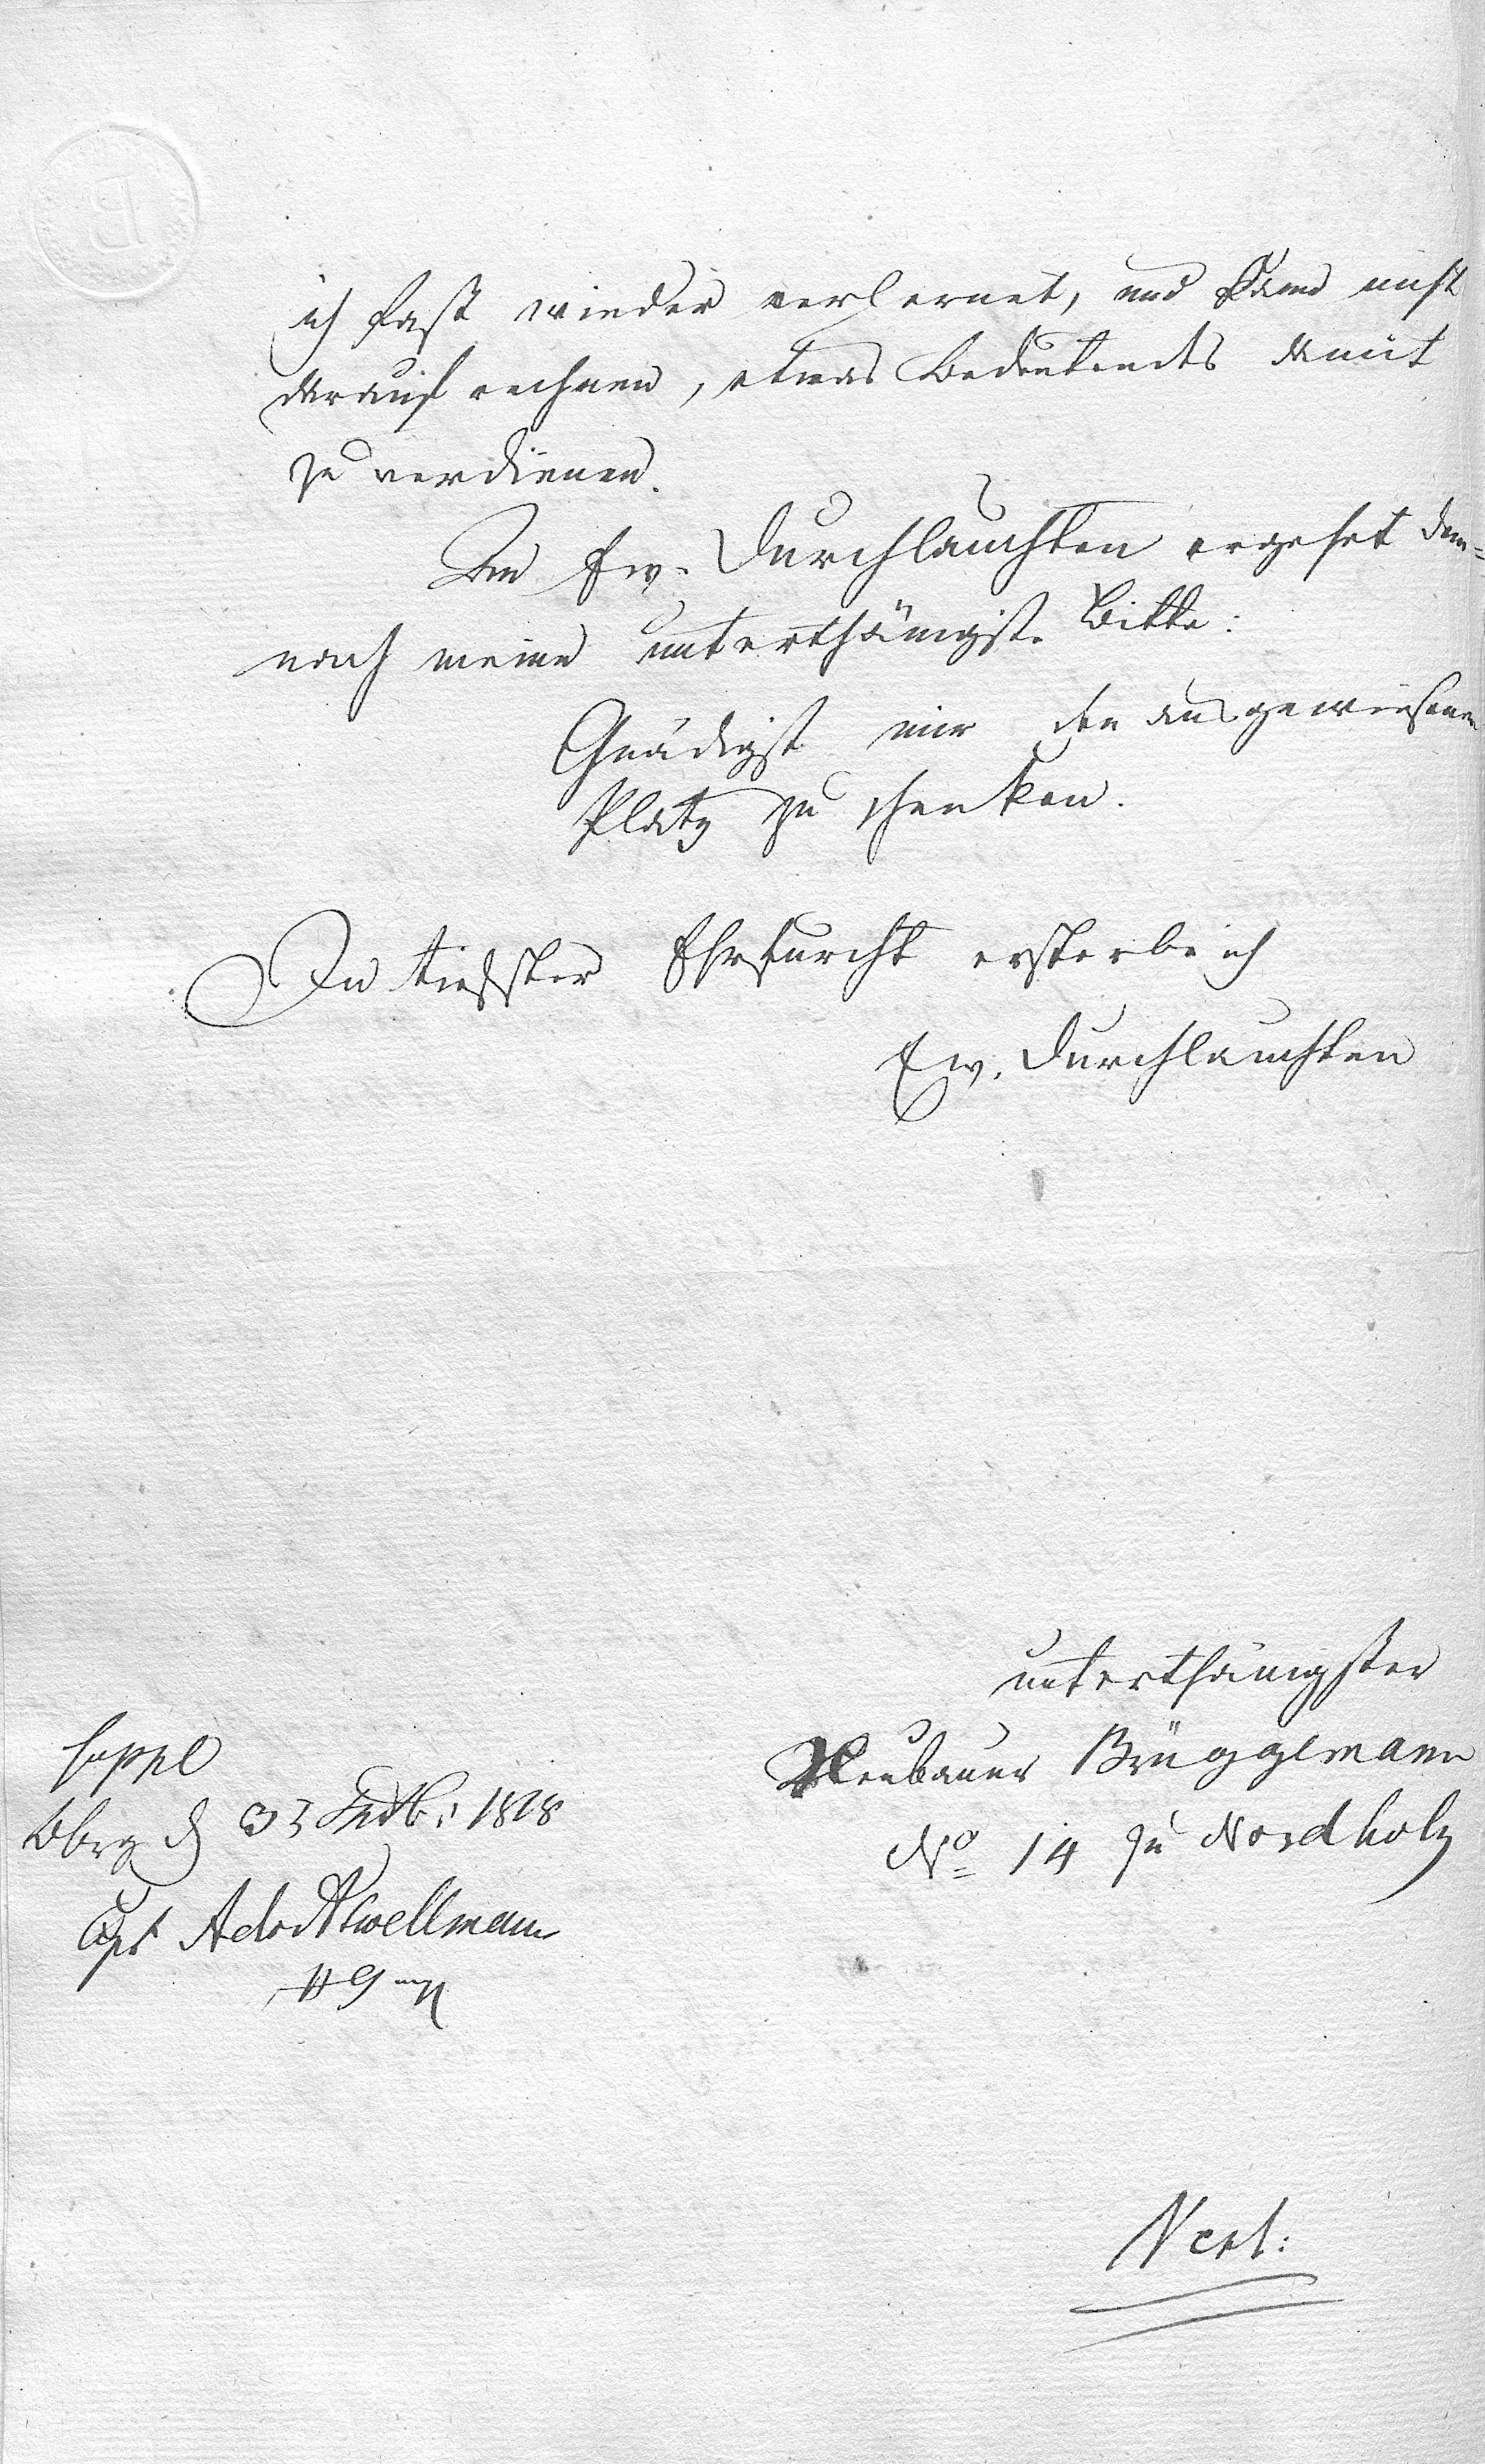 ich fast wieder verlernet, und kann nicht
darauf rechnen, etwas Bedeutendes damit
zu verdienen.
An Ew. Durchlauchten ergehet dem=
nach meine unterthänigste Bitte:
Gnädigst mir den ausgewiesenen
Platz zu schenken.
In tiefster Ehrfurcht ersterbe ich
Ew. Durchlauchten
unterthänigster
Neubauer Brüggemann
No 14 zu Nordholz
Bbrg d 1818
Verl:
B